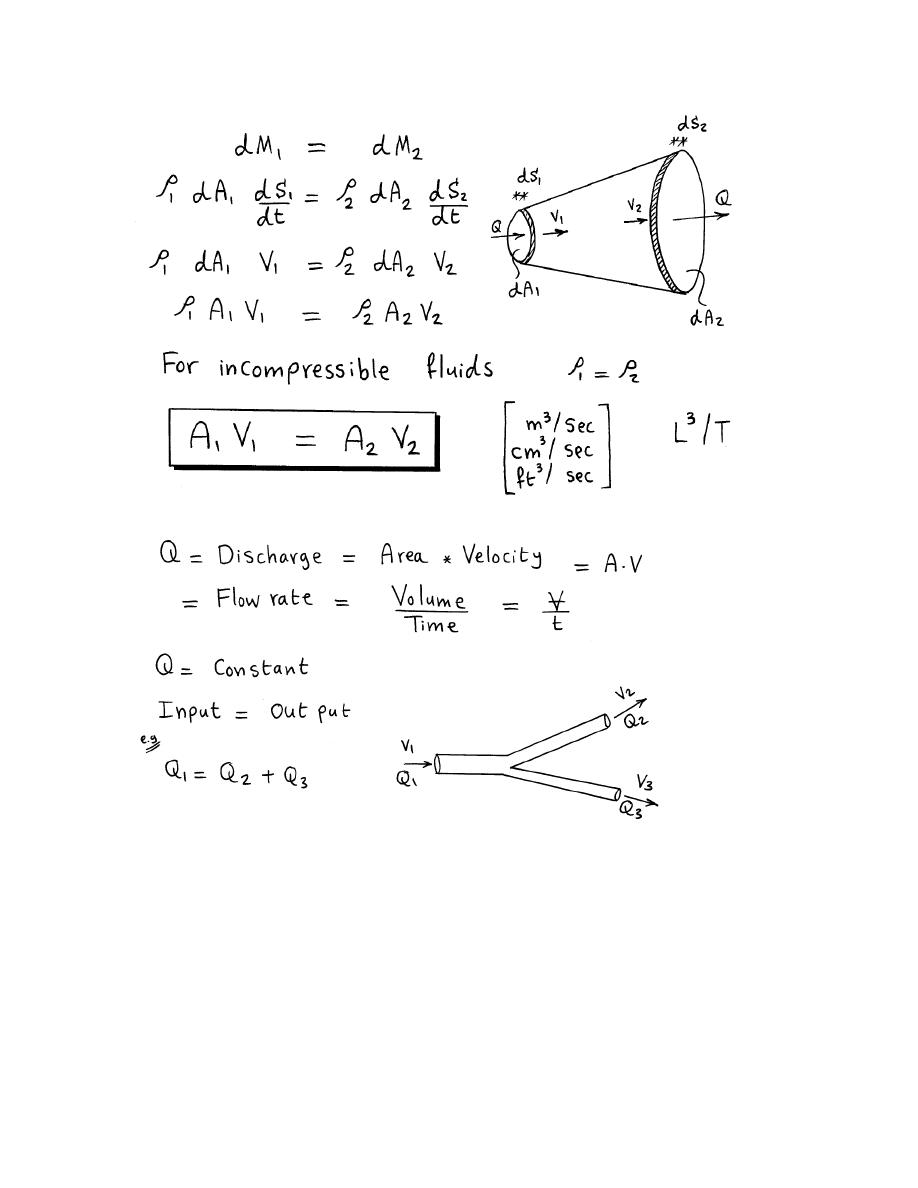 dM₁ = dM₂
ρ₁ dA₁ dS₁/dt = ρ₂ dA₂ dS₂/dt
ρ₁ dA₁ V₁ = ρ₂ dA₂ V₂
ρ₁ A₁ V₁ = ρ₂ A₂ V₂
dS₂
dS₁
Q V₁ V₂ Q
dA₁
dA₂
For incompressible fluids ρ₁ = ρ₂
A₁ V₁ = A₂ V₂
m³/Sec
cm³/ sec
ft³/ sec
L³/T
Q = Discharge = Area * Velocity = A.V
= Flow rate = Volume/Time = V̶/t
Q = Constant
Input = Out put
e.g
Q₁ = Q₂ + Q₃
V₁
Q₁
V₂
Q₂
V₃
Q₃